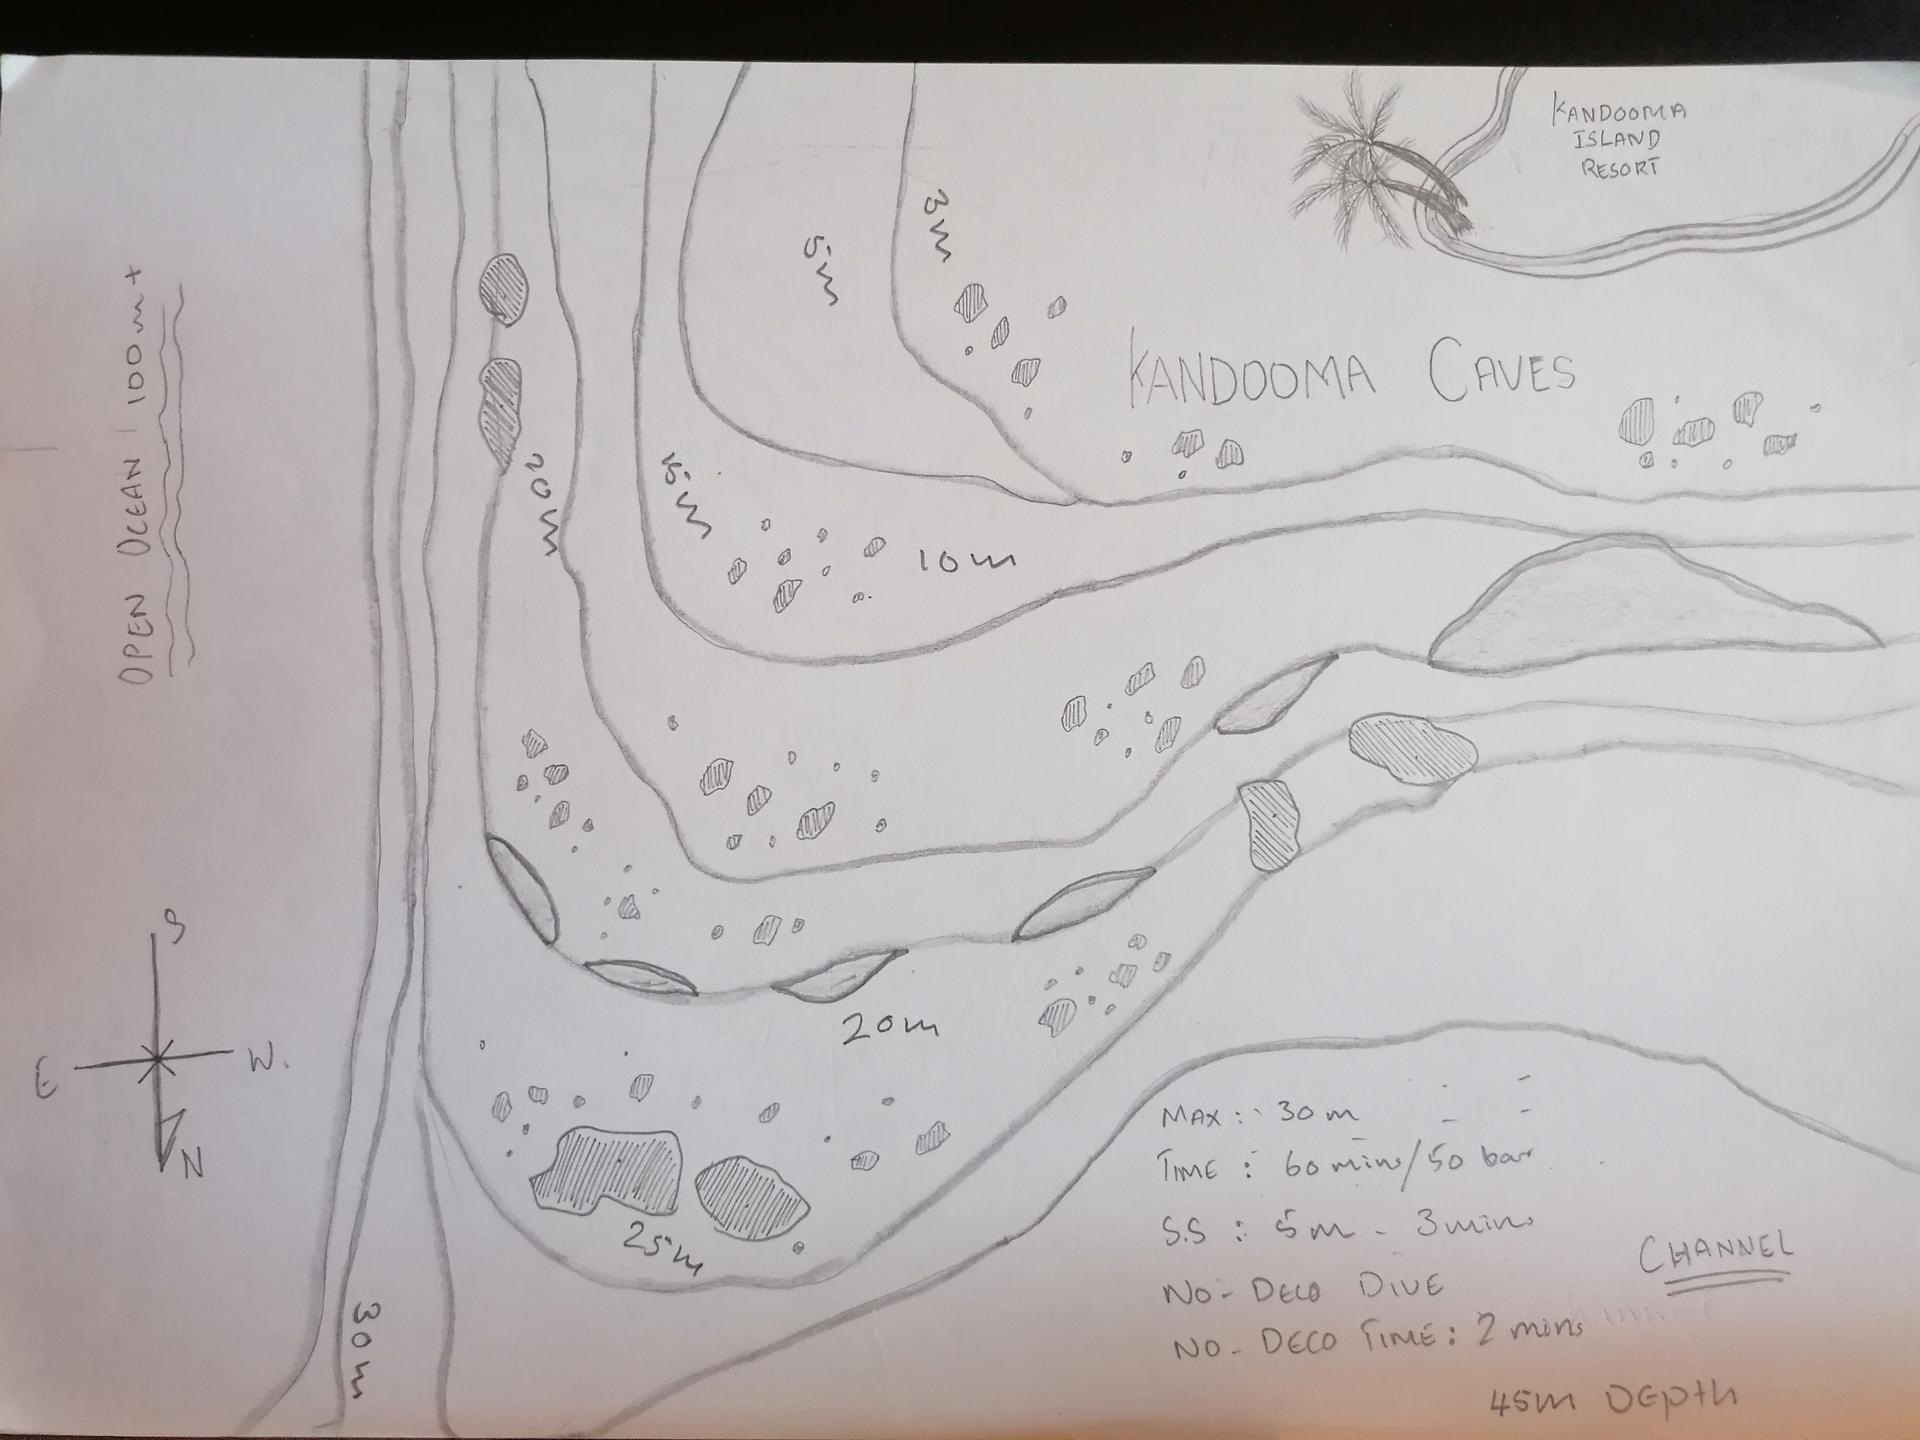 KANDOOMA
ISLAND
RESORT
3m
5m
KANDOOMA CAVES
OPEN OCEAN 100m+
20m
15m
10m
S
E
W.
N
20m
25m
30m
MAX : 30m
TIME : 60 mins/50 bar
S.S : 5m - 3 mins
NO-DECO DIVE
NO-DECO TIME: 2 mins
CHANNEL
45m DEPTH